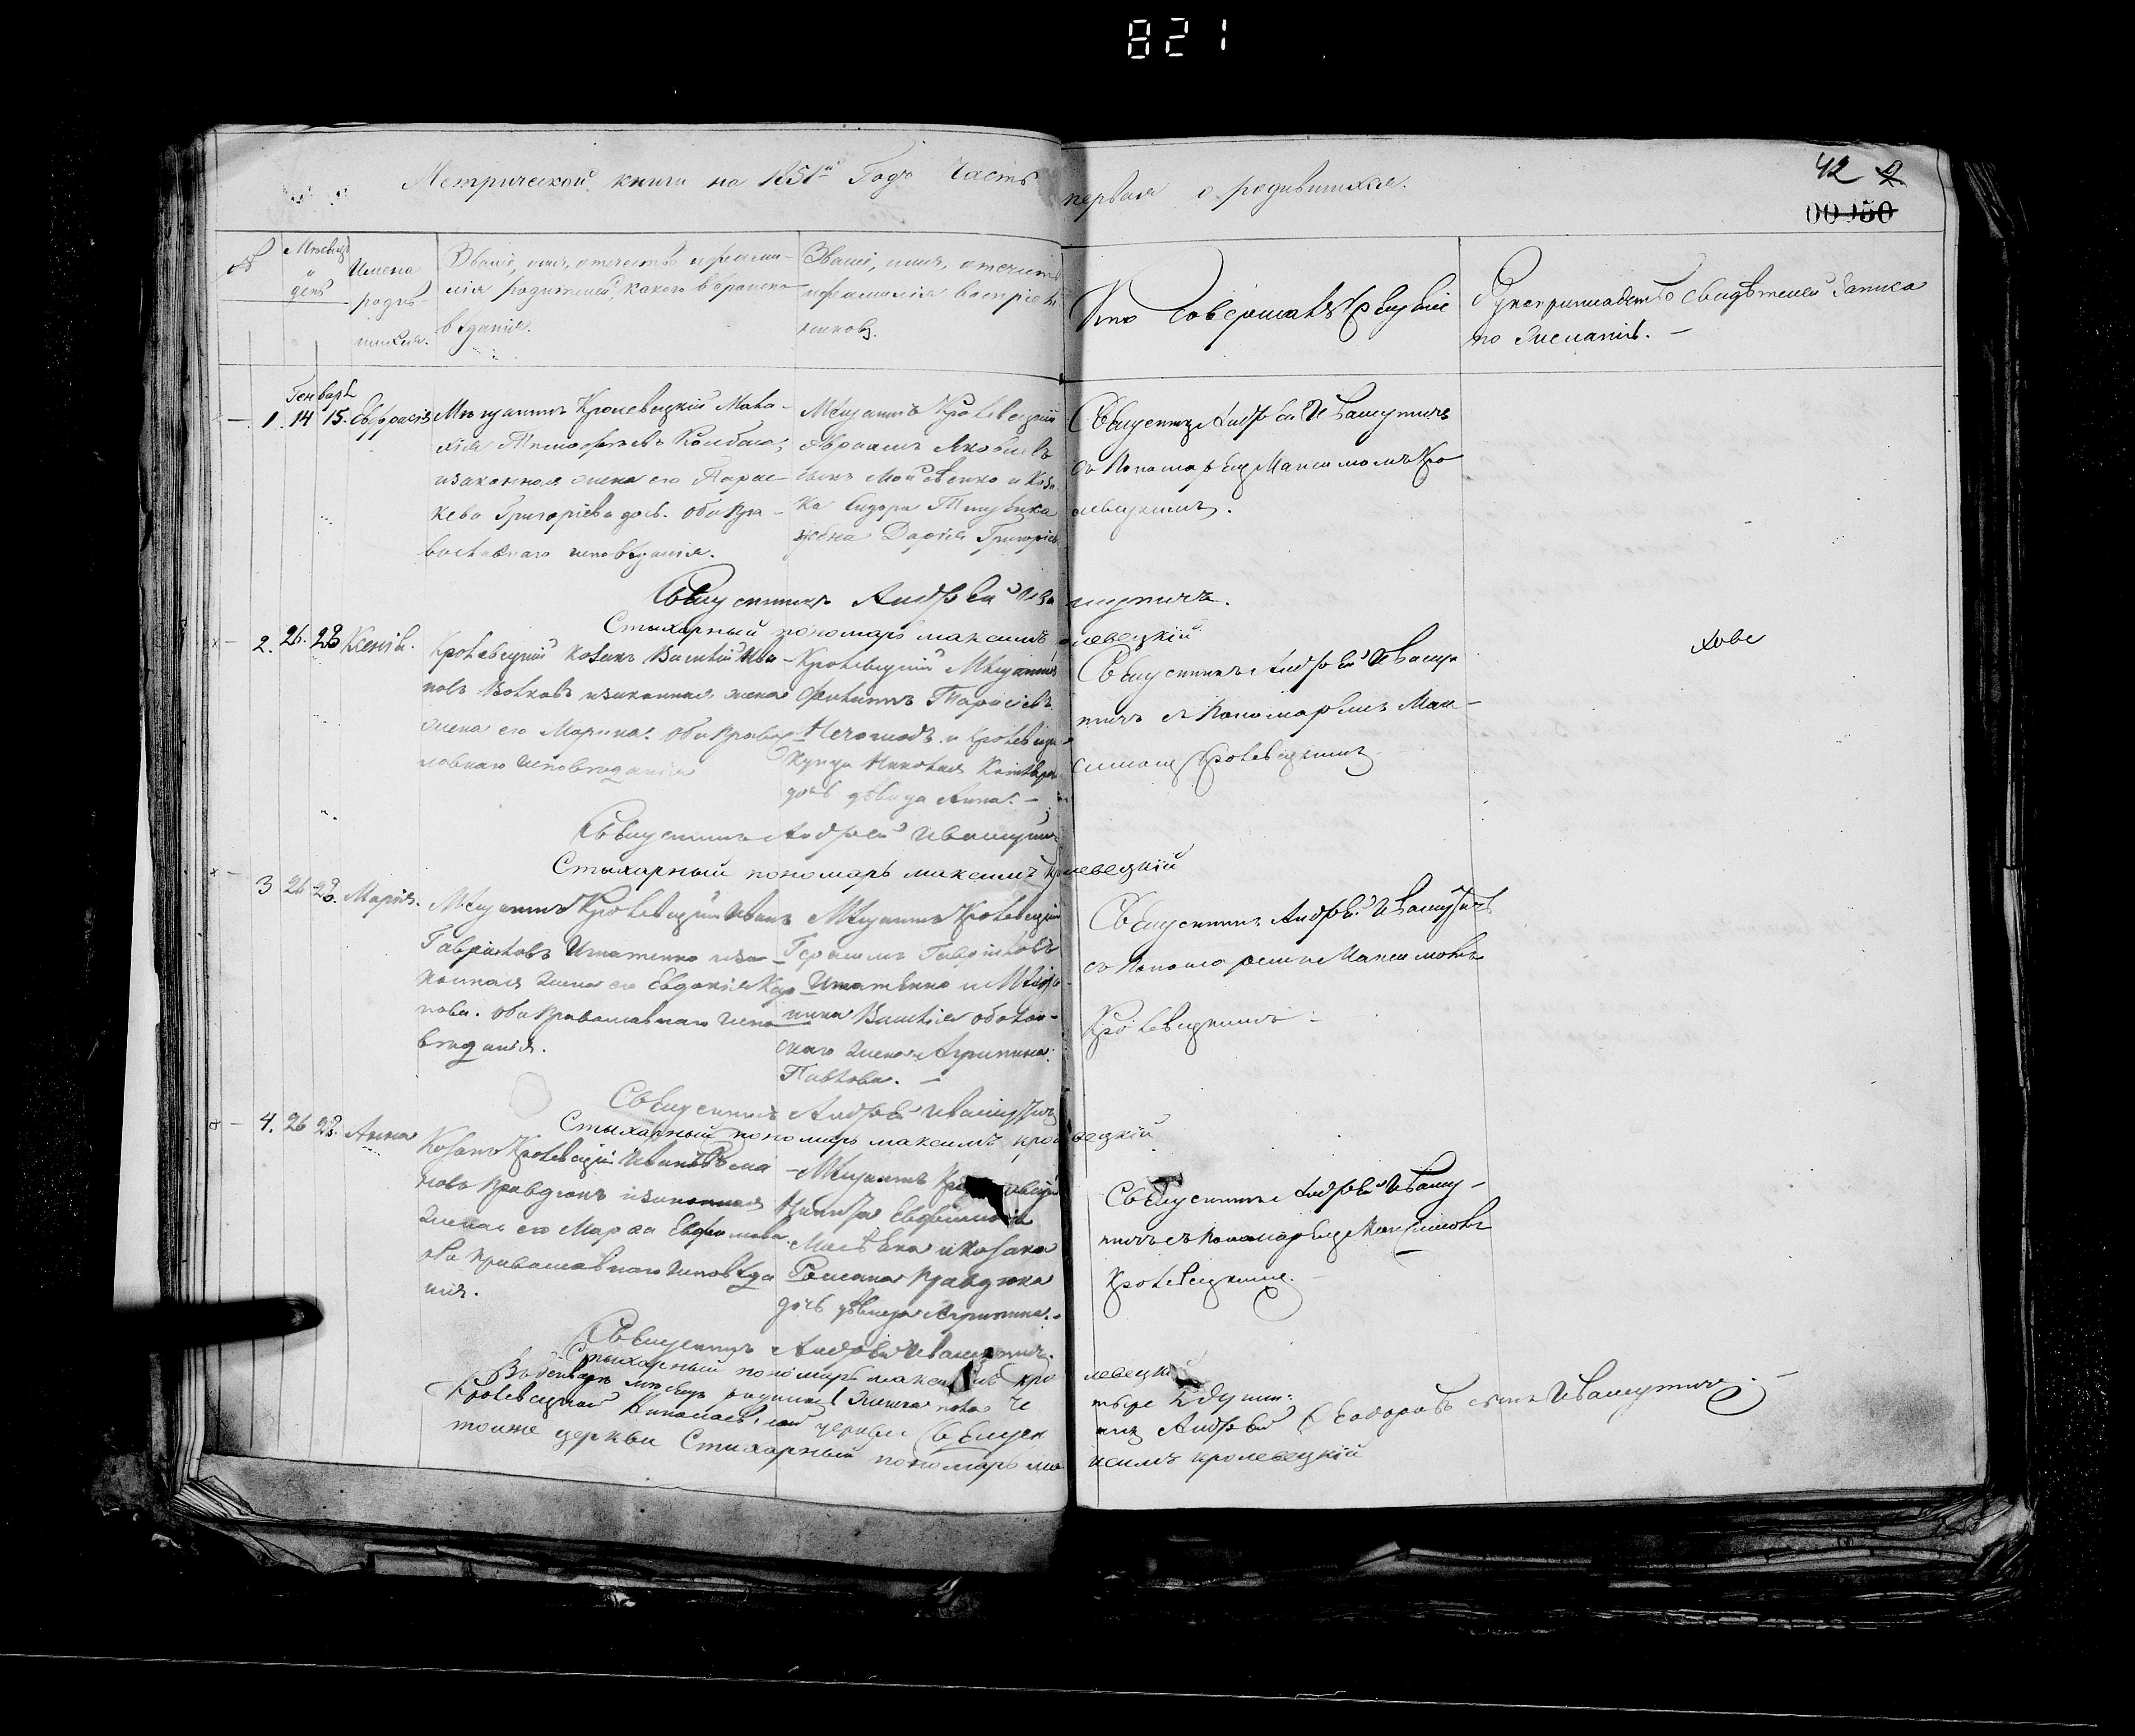 821
Метрической книги на 1851й Годъ Часть первая о родившихся.
42
00950
№
Мѣсяцъ и день
Имена родив-шихся.
Званіе, имя, отечество и фами-
лія родителей, какого вѣроиспо-
вѣданія.
Званіе, имя, отечество
и фамилія воспріем-
никовъ.
Кто совершалъ
Рукоприкладство свидѣтелей записа
по желанію.
Генварь
1. 14 15. Евфросія
Мѣщанинъ Кролевецкій Мала-
хія Тимофѣевъ Колбаса,
и законная жена его Парас-
кева Григорієва дочь. оба пра-
вославнаго исповѣданія.
Мѣщанинъ Кролевецкій
Авраамъ Яковлевъ
сынъ Мойсѣенко и Коза-
ка Сидора
жена Дарія Григоріева
Священникъ Андрей Ивашутичь
съ Пономаремъ Максимомъ Кро
левецкимъ.
Священникъ Андрей Ивашутичъ.
Стыхарный пономарь максимъ кролевецкій
2. 26. 28 Ксенія.
Кролевецкій Козакъ Василій Ива-
новъ Волковъ и законная жена
жена его Марина. оба Право
славнаго исповѣданія
Кролевецкій Мѣщанинъ
Филипъ Тарасіевъ
и Кролевецка
Купца Николая
дочь дѣвица Анна. —
Священникъ Андрей Ивашу
тичъ съ Пономаремъ Мак-
симомъ Кролевецкимъ
Священникъ Андрей Ивашутичъ
Стыхарный пономарь максимъ кролевецкій
3 26 28. Марія.
Мѣщанинъ Кролевецкій Иванъ
Гавріиловъ Игнатенко и за-
конная жена его Евдокія Кар
пова. оба Православнаго испо-
вѣданія.
Мѣщанинъ Кролевецкій
Герасимъ Гавріиловъ
Игнатенко и Мѣща-
нина Василія оболон-
скаго жена Агрипина
Павлова. —
Священникъ Андрей Ивашутичъ
съ Пономаремъ Максимомъ
Кролевецкимъ
Священникъ Андрей Ивашутичъ
Стыхарный пономарь максимъ кролевецкій
4. 26 28. Анна
Козакъ Кролевецкій Иванъ
новъ Правдюкъ и законная
жена его Марфа Евфимова
оба православнаго исповѣда
нія.
Мѣщанинъ Кролевецкій
Никита Евфиміевъ
и Козака
Романа Правдюка
дочь дѣвица Агрипина. -
Священникъ Андрей Ивашу-
тичъ съ Пономаремъ Максимомъ
Кролевецкимъ.
Священникъ Андрей Ивашутичъ.
Стыхарный пономарь максимъ кролевецкій
Въ Генварѣ мѣсяцѣ родилось женска пола четыре души:
Кролевецкой Николаевской церкви Священникъ Андрей Феодоровъ сынъ Ивашутичь. —
тоиже церкви Стихарный пономарь максимъ кролевецкій